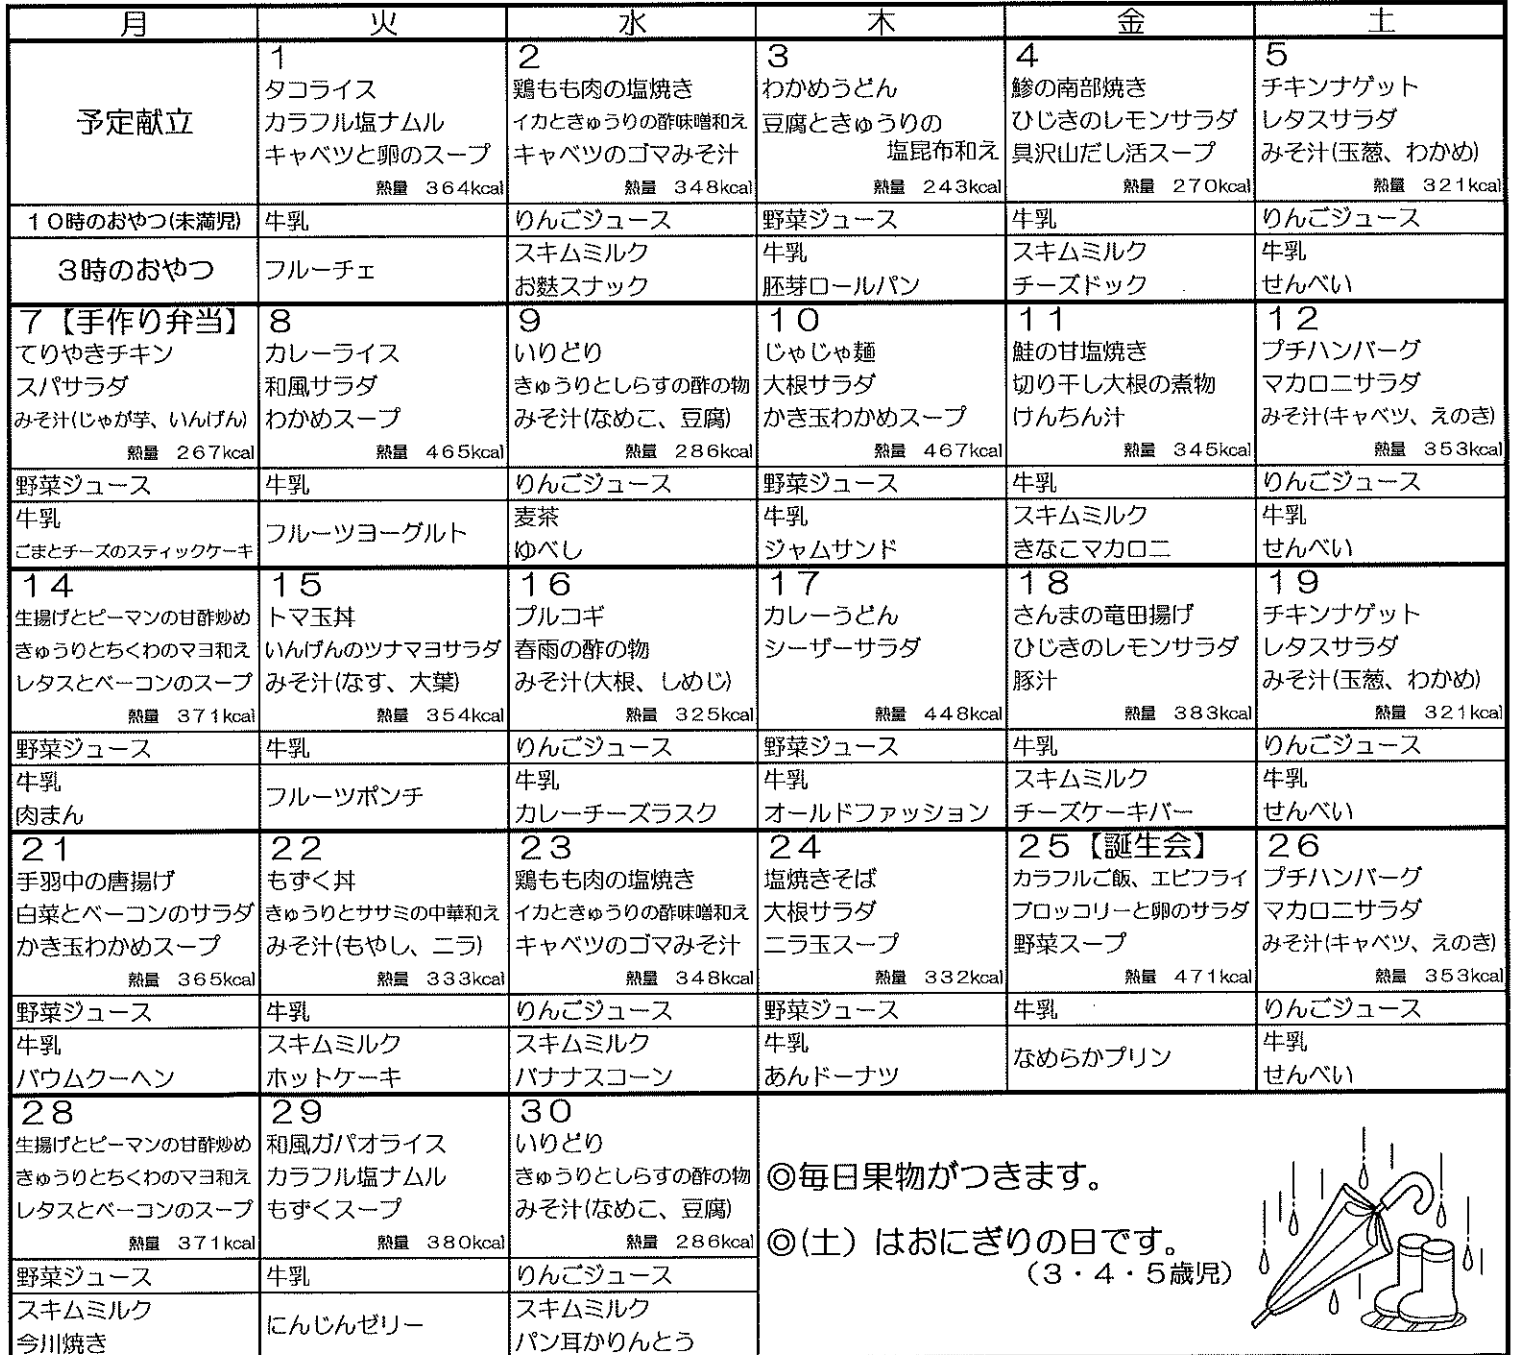 月 火 水 木 金 土
予定献立
1
タコライス
カラフル塩ナムル
キャベツと卵のスープ
熱量 364kcal
2
鶏もも肉の塩焼き
イカときゅうりの酢味噌和え
キャベツのゴマみそ汁
熱量 348kcal
3
わかめうどん
豆腐ときゅうりの
塩昆布和え
熱量 243kcal
4
鯵の南部焼き
ひじきのレモンサラダ
具沢山だし活スープ
熱量 270kcal
5
チキンナゲット
レタスサラダ
みそ汁(玉葱、わかめ)
熱量 321kcal
10時のおやつ(未満児) 牛乳 りんごジュース 野菜ジュース 牛乳 りんごジュース
3時のおやつ
フルーチェ
スキムミルク
お麩スナック
牛乳
胚芽ロールパン
スキムミルク
チーズドック
牛乳
せんべい
7【手作り弁当】
てりやきチキン
スパサラダ
みそ汁(じゃが芋、いんげん)
熱量 267kcal
8
カレーライス
和風サラダ
わかめスープ
熱量 465kcal
9
いりどり
きゅうりとしらすの酢の物
みそ汁(なめこ、豆腐)
熱量 286kcal
10
じゃじゃ麺
大根サラダ
かき玉わかめスープ
熱量 467kcal
11
鮭の甘塩焼き
切り干し大根の煮物
けんちん汁
熱量 345kcal
12
プチハンバーグ
マカロニサラダ
みそ汁(キャベツ、えのき)
熱量 353kcal
野菜ジュース 牛乳 りんごジュース 野菜ジュース 牛乳 りんごジュース
牛乳
ごまとチーズのスティックケーキ
フルーツヨーグルト
麦茶
ゆべし
牛乳
ジャムサンド
スキムミルク
きなこマカロニ
牛乳
せんべい
14
生揚げとピーマンの甘酢炒め
きゅうりとちくわのマヨ和え
レタスとベーコンのスープ
熱量 371kcal
15
トマ玉丼
いんげんのツナマヨサラダ
みそ汁(なす、大葉)
熱量 354kcal
16
プルコギ
春雨の酢の物
みそ汁(大根、しめじ)
熱量 325kcal
17
カレーうどん
シーザーサラダ
熱量 448kcal
18
さんまの竜田揚げ
ひじきのレモンサラダ
豚汁
熱量 383kcal
19
チキンナゲット
レタスサラダ
みそ汁(玉葱、わかめ)
熱量 321kcal
野菜ジュース 牛乳 りんごジュース 野菜ジュース 牛乳 りんごジュース
牛乳
肉まん
フルーツポンチ
牛乳
カレーチーズラスク
牛乳
オールドファッション
スキムミルク
チーズケーキバー
牛乳
せんべい
21
手羽中の唐揚げ
白菜とベーコンのサラダ
かき玉わかめスープ
熱量 365kcal
22
もずく丼
きゅうりとササミの中華和え
みそ汁(もやし、ニラ)
熱量 333kcal
23
鶏もも肉の塩焼き
イカときゅうりの酢味噌和え
キャベツのゴマみそ汁
熱量 348kcal
24
塩焼きそば
大根サラダ
ニラ玉スープ
熱量 332kcal
25【誕生会】
カラフルご飯、エビフライ
ブロッコリーと卵のサラダ
野菜スープ
熱量 471kcal
26
プチハンバーグ
マカロニサラダ
みそ汁(キャベツ、えのき)
熱量 353kcal
野菜ジュース 牛乳 りんごジュース 野菜ジュース 牛乳 りんごジュース
牛乳
バウムクーヘン
スキムミルク
ホットケーキ
スキムミルク
バナナスコーン
牛乳
あんドーナツ
なめらかプリン
牛乳
せんべい
28
生揚げとピーマンの甘酢炒め
きゅうりとちくわのマヨ和え
レタスとベーコンのスープ
熱量 371kcal
29
和風ガパオライス
カラフル塩ナムル
もずくスープ
熱量 380kcal
30
いりどり
きゅうりとしらすの酢の物
みそ汁(なめこ、豆腐)
熱量 286kcal
◎毎日果物がつきます。
◎(土)はおにぎりの日です。
(3・4・5歳児)
野菜ジュース 牛乳 りんごジュース
スキムミルク
今川焼き
にんじんゼリー
スキムミルク
パン耳かりんとう